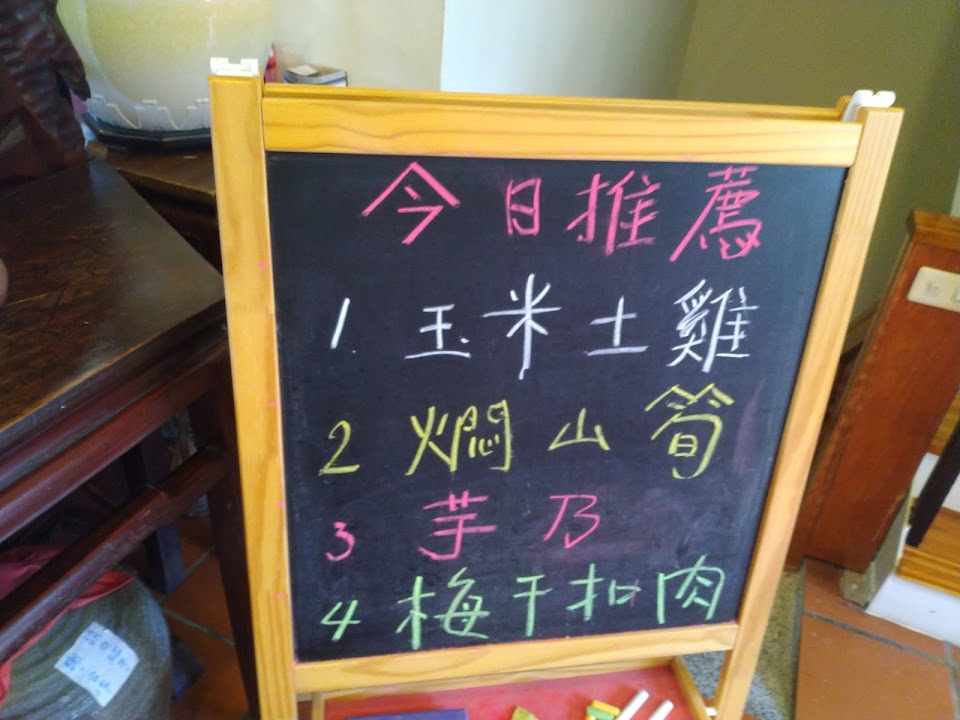 今日推薦
1. 玉米土雞
2 燜山筍
3 芋乃
4 梅干扣肉